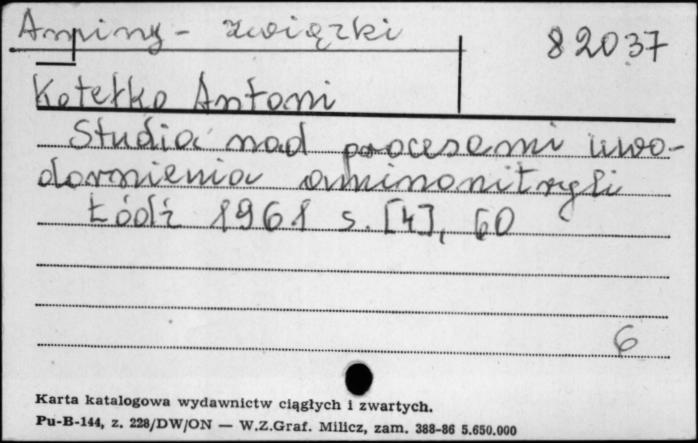 Aminy - związki
82037
Kotełko Antoni
Studia nad procesami uwo-
dornienia aminonitryli
Łódź 1961 s. [4], 60
6
Karta katalogowa wydawnictw ciągłych i zwartych.
Pu-B-144, z. 228/DW/ON — W.Z.Graf. Milicz, zam. 388-86 5.650.000